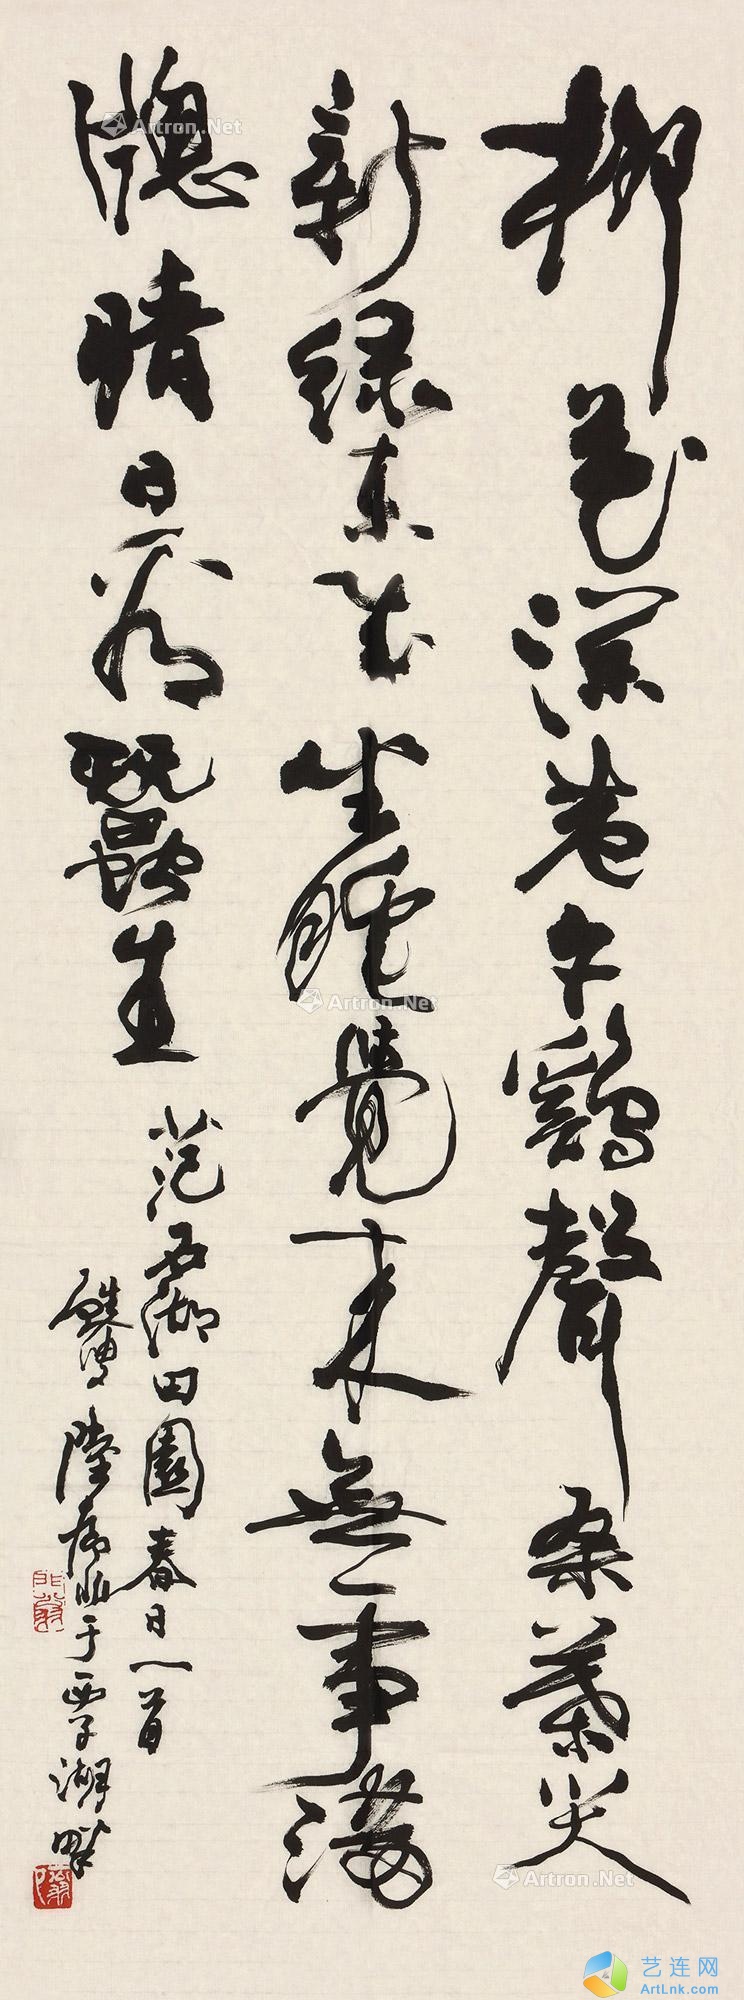 柳花深巷午鷄聲桑葉尖
新緑未成坐睡覺来無一事滿
牕晴日看蠶生
范石湖田園春日一首
叟陸非于西子湖畔
Artron.Net
Artron.Net
Artron.Net
艺连网
ArtLnk.com